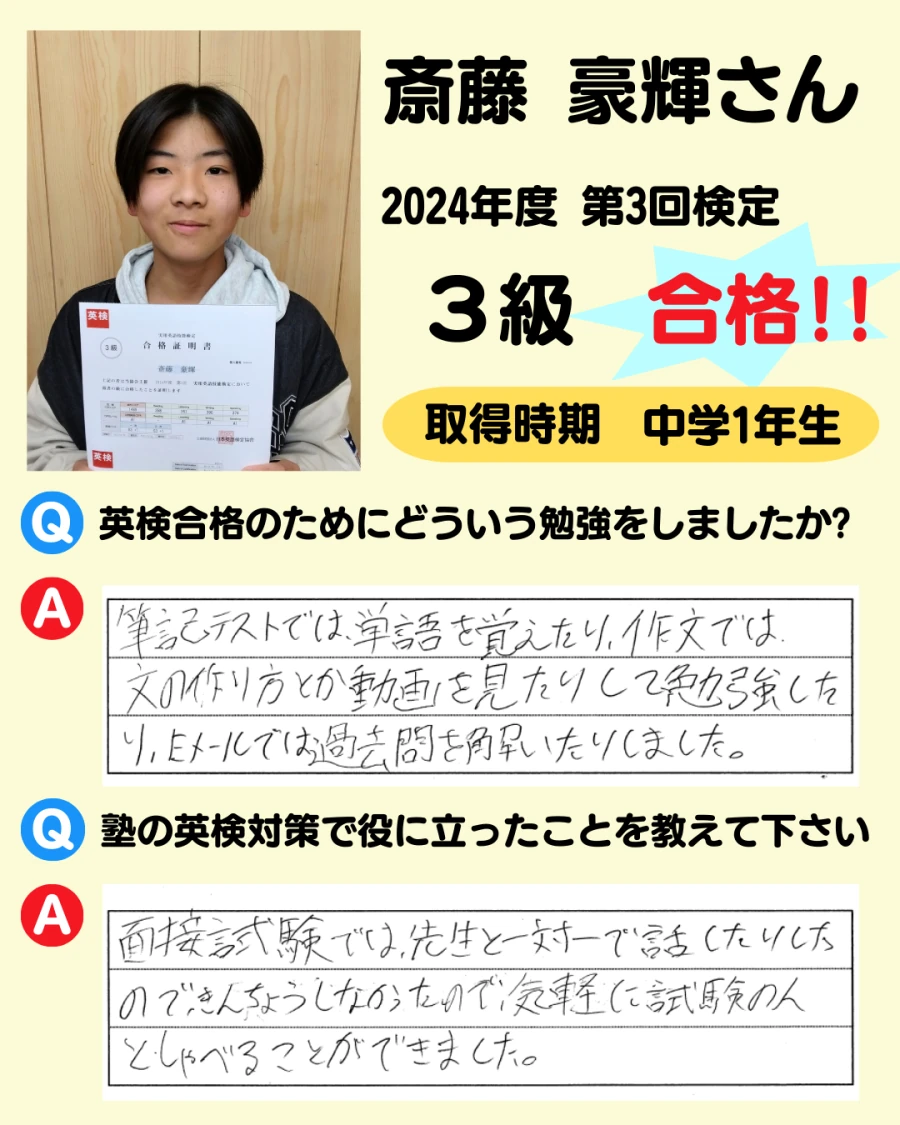 斎藤 豪輝さん
2024年度 第3回検定
３級 合格!!
取得時期 中学1年生
英検
実用英語技能検定
3級
合格証明書
斎藤 豪輝
日本英語検定協会
英検
Q 英検合格のためにどういう勉強をしましたか?
A 筆記テストでは、単語を覚えたり、作文では、
文の作り方とか動画を見たりして勉強した
り、Eメールでは過去問を解いたりしました。
Q 塾の英検対策で役に立ったことを教えて下さい
A 面接試験では、先生と一対一で話したりした
ので、きんちょうしなかったので、気軽に試験の人
としゃべることができました。